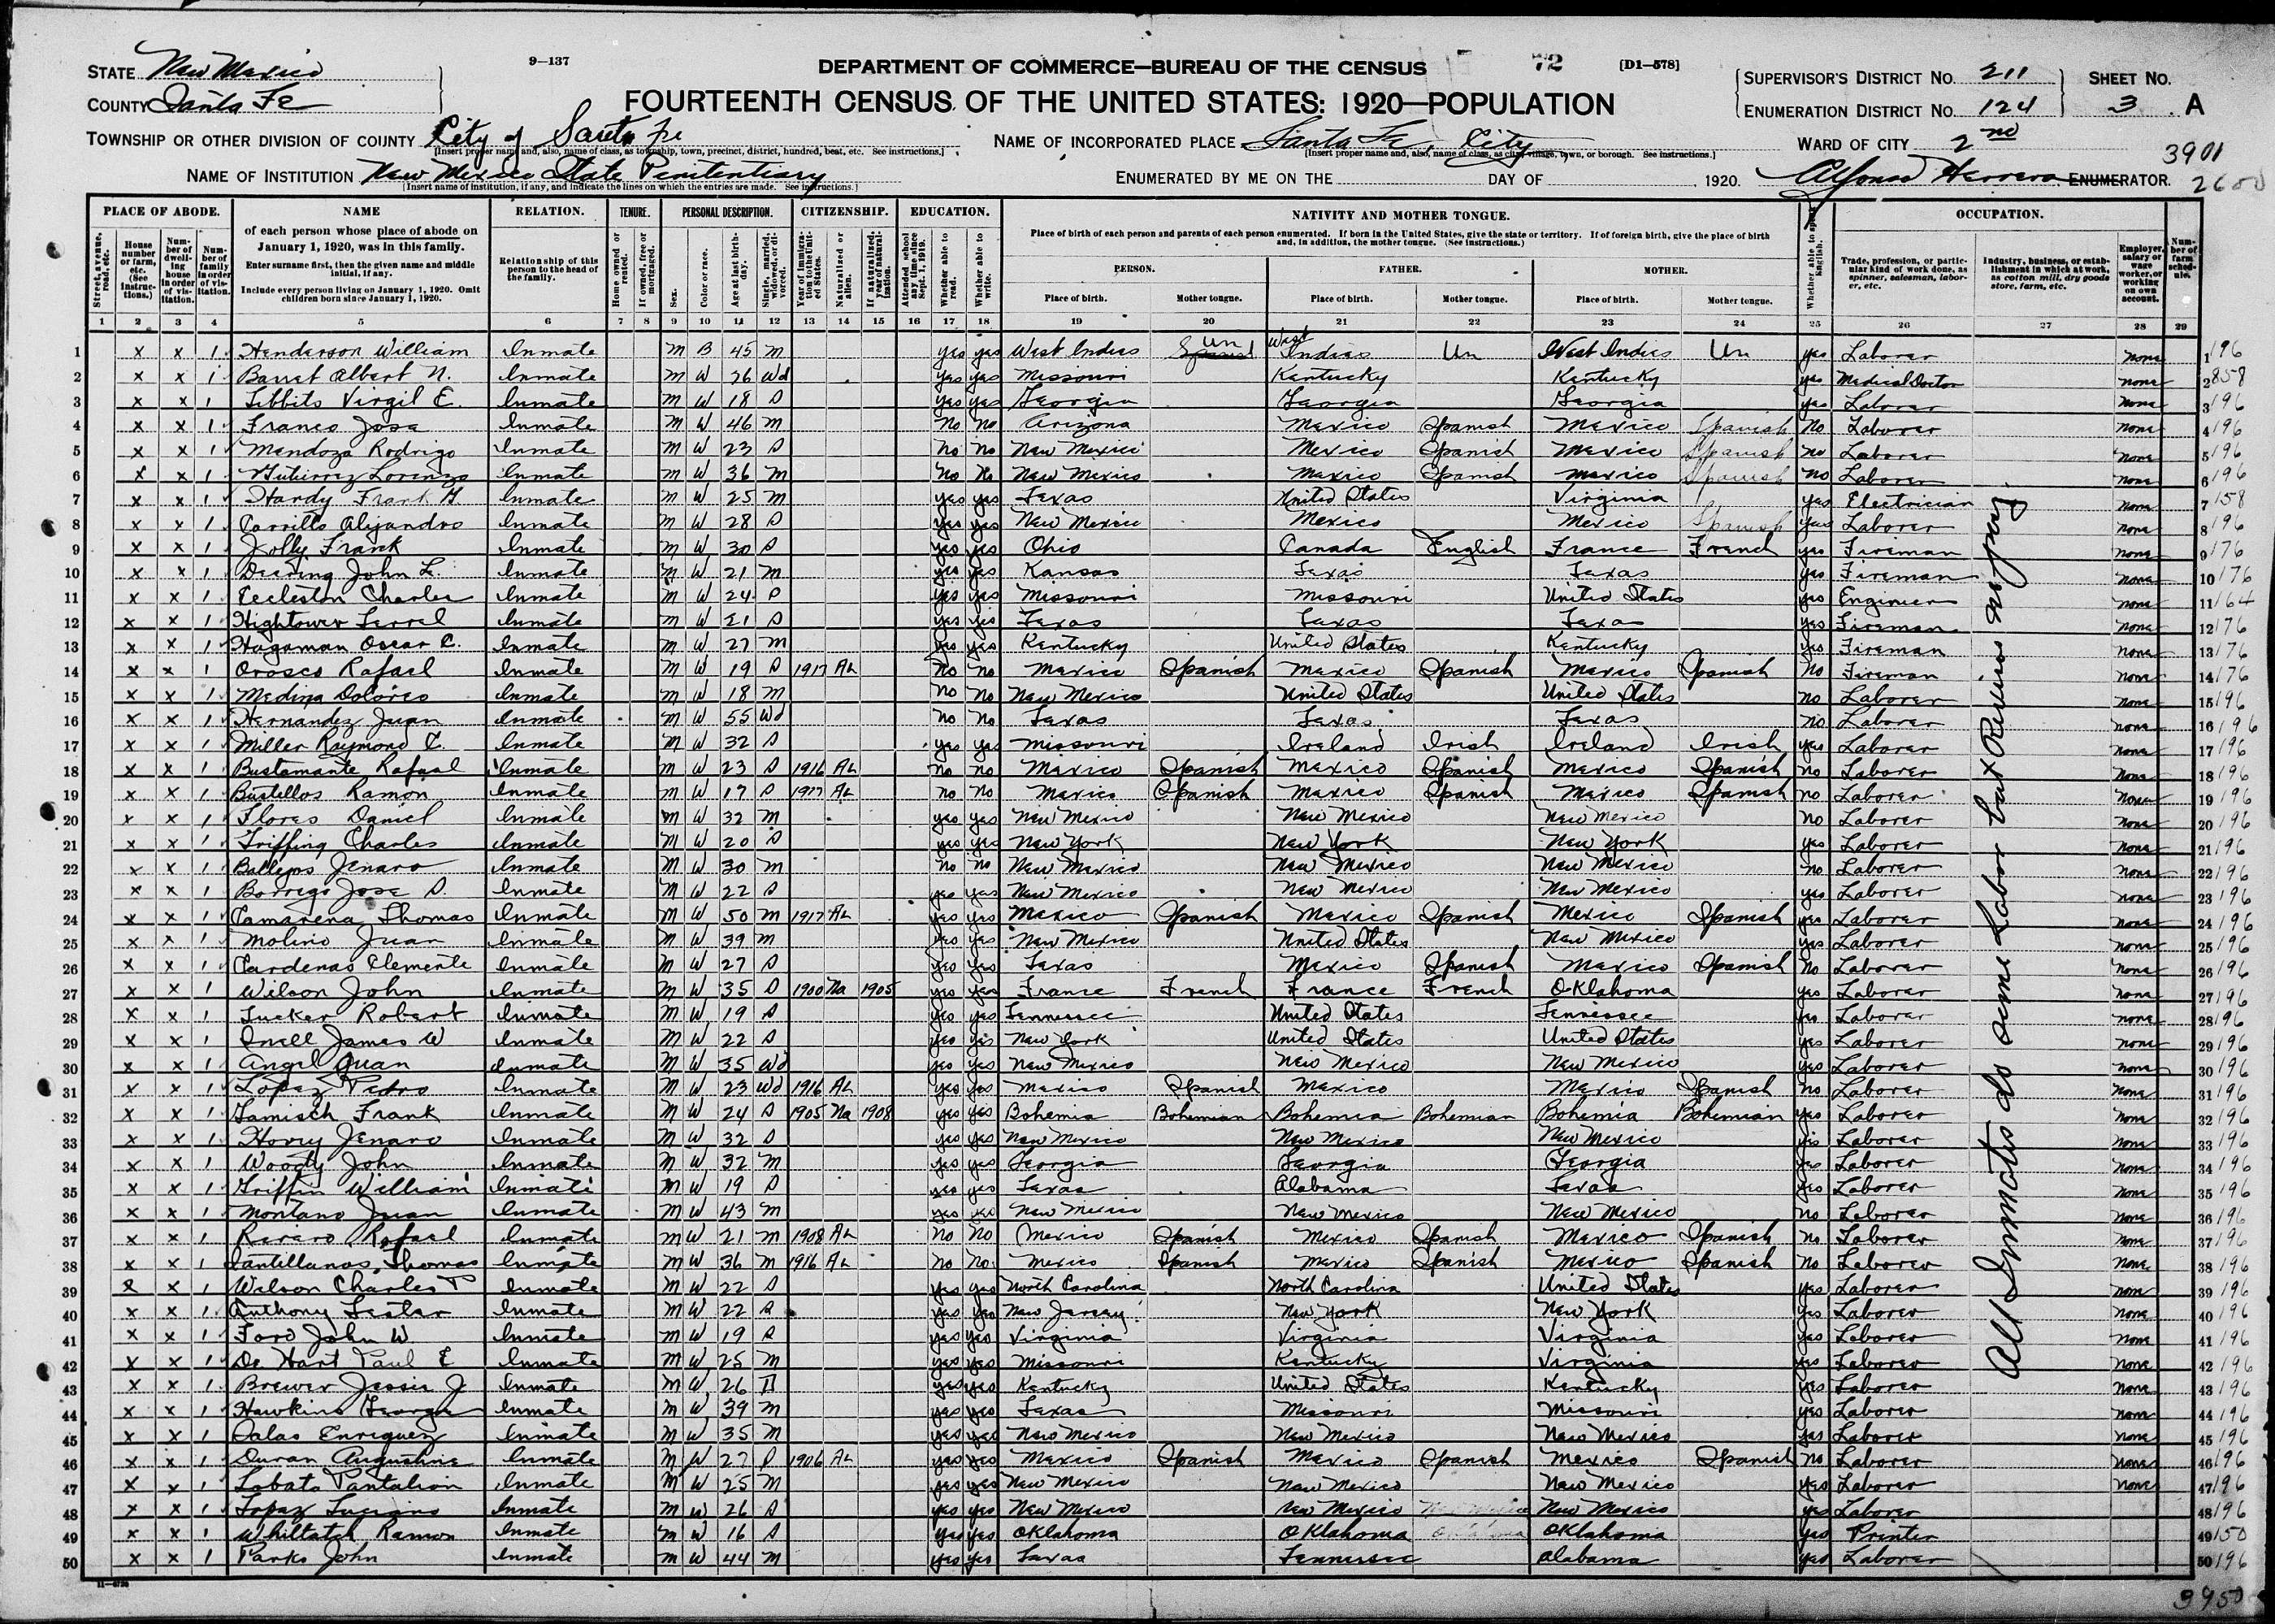 STATE New Mexico
COUNTY Santa Fe
9—137
DEPARTMENT OF COMMERCE—BUREAU OF THE CENSUS
72
[D1—578]
FOURTEENTH CENSUS OF THE UNITED STATES: 1920—POPULATION
SUPERVISOR'S DISTRICT No. 211
ENUMERATION DISTRICT No. 124
SHEET No. 3 A
TOWNSHIP OR OTHER DIVISION OF COUNTY City of Santa Fe
[Insert proper name and, also, name of class, as township, town, precinct, district, hundred, beat, etc. See instructions.]
NAME OF INCORPORATED PLACE Santa Fe, City
[Insert proper name and, also, name of class, as city, village, town, or borough. See instructions.]
WARD OF CITY 2nd
3901
NAME OF INSTITUTION New Mexico State Penitentiary
[Insert name of institution, if any, and indicate the lines on which the entries are made. See instructions.]
ENUMERATED BY ME ON THE DAY OF , 1920. Alfonso Herrera ENUMERATOR.
PLACE OF ABODE. NAME RELATION. TENURE. PERSONAL DESCRIPTION. CITIZENSHIP. EDUCATION. NATIVITY AND MOTHER TONGUE. OCCUPATION.
of each person whose place of abode on January 1, 1920, was in this family.
Enter surname first, then the given name and middle initial, if any.
Include every person living on January 1, 1920. Omit children born since January 1, 1920.
Relationship of this person to the head of the family.
Place of birth of each person and parents of each person enumerated. If born in the United States, give the state or territory. If of foreign birth, give the place of birth and, in addition, the mother tongue. (See instructions.)
PERSON. FATHER. MOTHER.
Place of birth. Mother tongue. Place of birth. Mother tongue. Place of birth. Mother tongue.
Trade, profession, or particular kind of work done, as spinner, salesman, laborer, etc.
Industry, business, or establishment in which at work, as cotton mill, dry goods store, farm, etc.
Employer, salary or wage worker, or working on own account.
1 2 3 4 5 6 7 8 9 10 11 12 13 14 15 16 17 18 19 20 21 22 23 24 25 26 27 28 29
1 x x 1 Henderson William Inmate M B 45 M yes yes West Indies Spanish Un West Indies Un West Indies Un yes Laborer none 1 196
2 x x 1 Albert N. Inmate M W Wd yes yes Missouri Kentucky Kentucky yes Medical Doctor none 2 858
3 x x 1 Tibbits Virgil E. Inmate M W 18 S yes yes Georgia Georgia Georgia yes Laborer none 3 196
4 x x 1 Franco Jose Inmate M W 46 M No No Arizona Mexico Spanish Mexico Spanish No Laborer none 4 196
5 x x 1 Mendoza Rodrigo Inmate M W 23 S No No New Mexico Mexico Spanish Mexico Spanish no Laborer none 5 196
6 x x 1 Gutierrez Lorenzo Inmate M W 36 M No No New Mexico Mexico Spanish Mexico Spanish No Laborer none 6 196
7 x x 1 Hardy Frank H. Inmate M W 25 M yes yes Texas United States Virginia yes Electrician none 7 158
8 x x 1 Carrillo Alejandro Inmate M W 28 S yes yes New Mexico Mexico Mexico Spanish yes Laborer none 8 196
9 x x 1 Jolly Frank Inmate M W 30 S yes yes Ohio Canada English France French yes Fireman none 9 176
10 x x 1 Deering John L. Inmate M W 21 M yes yes Kansas Texas Texas yes Fireman none 10 176
11 x x 1 Eccleston Charles Inmate M W 24 yes yes Missouri Missouri United States yes Engineer none 11 164
12 x x 1 Hightower Terrel Inmate M W 21 S yes yes Texas Texas Texas yes Fireman none 12 176
13 x x 1 Hagaman Oscar C. Inmate M W 27 M yes yes Kentucky United States Kentucky yes Fireman none 13 176
14 x x 1 Orosco Rafael Inmate M W 19 S 1917 AL No No Mexico Spanish Mexico Spanish Mexico Spanish No Fireman none 14 176
15 x x 1 Medina Dolores Inmate M W 18 M No No New Mexico United States United States no Laborer none 15 196
16 x x 1 Hernandez Juan Inmate M W 55 Wd No No Texas Texas Texas no Laborer none 16 196
17 x x 1 Miller Raymond C. Inmate M W 32 S yes yes Missouri Ireland Irish Ireland Irish yes Laborer none 17 196
18 x x 1 Bustamante Rafael Inmate M W 23 S 1916 AL No No Mexico Spanish Mexico Spanish Mexico Spanish no Laborer none 18 196
19 x x 1 Bustellos Ramon Inmate M W 17 S 1917 AL No No Mexico Spanish Mexico Spanish Mexico Spanish no Laborer none 19 196
20 x x 1 Flores Daniel Inmate M W 32 M yes yes New Mexico New Mexico New Mexico No Laborer none 20 196
21 x x 1 Griffing Charles Inmate M W 20 S yes yes New York New York New York yes Laborer none 21 196
22 x x 1 Ballejos Jenaro Inmate M W 30 M No No New Mexico New Mexico New Mexico no Laborer none 22 196
23 x x 1 Borrego Jose S. Inmate M W 22 S yes yes New Mexico New Mexico New Mexico yes Laborer none 23 196
24 x x 1 Camarena Thomas Inmate M W 50 M 1917 AL yes yes Mexico Spanish Mexico Spanish Mexico Spanish yes Laborer none 24 196
25 x x 1 Molino Juan Inmate M W 39 M yes yes New Mexico United States New Mexico yes Laborer none 25 196
26 x x 1 Cardenas Clemente Inmate M W 27 S yes yes Texas Mexico Spanish Mexico Spanish No Laborer none 26 196
27 x x 1 Wilson John Inmate M W 35 S 1900 Na 1905 yes yes France French France French Oklahoma yes Laborer none 27 196
28 x x 1 Tucker Robert Inmate M W 19 S yes yes Tennessee United States Tennessee yes Laborer none 28 196
29 x x 1 Snell James W Inmate M W 22 S yes yes New York United States United States yes Laborer none 29 196
30 x x 1 Angel Juan Inmate M W 35 Wd yes yes New Mexico New Mexico New Mexico yes Laborer none 30 196
31 x x 1 Lopez Pedro Inmate M W 23 Wd 1916 AL yes yes Mexico Spanish Mexico Mexico Spanish No Laborer none 31 196
32 x x 1 Frank Inmate M W 24 S 1905 Na 1908 yes yes Bohemia Bohemian Bohemia Bohemian Bohemia Bohemian yes Laborer none 32 196
33 x x 1 Jenaro Inmate M W 32 S yes yes New Mexico New Mexico New Mexico yes Laborer none 33 196
34 x x 1 Woody John Inmate M W 32 M yes yes Georgia Georgia Georgia yes Laborer none 34 196
35 x x 1 Griffin William Inmate M W 19 S yes yes Texas Alabama Texas yes Laborer none 35 196
36 x x 1 Montano Juan Inmate M W 43 M yes yes New Mexico New Mexico New Mexico no Laborer none 36 196
37 x x 1 Rafael Inmate M W 21 M 1908 AL No No Mexico Spanish Mexico Spanish Mexico Spanish No Laborer none 37 196
38 x x 1 Santillanos Thomas Inmate M W 36 M 1916 AL No No Mexico Spanish Mexico Spanish Mexico Spanish No Laborer none 38 196
39 x x 1 Wilson Charles P Inmate M W 22 S yes yes North Carolina North Carolina United States yes Laborer none 39 196
40 x x 1 Anthony Lester Inmate M W 22 S yes yes New Jersey New York New York yes Laborer none 40 196
41 x x 1 Ford John W. Inmate M W 19 S yes yes Virginia Virginia Virginia yes Laborer none 41 196
42 x x 1 De Hart Paul E Inmate M W 25 M yes yes Missouri Kentucky Virginia yes Laborer none 42 196
43 x x 1 Brewer Jessie J Inmate M W 26 D yes yes Kentucky United States Kentucky yes Laborer none 43 196
44 x x 1 Hawkins George Inmate M W 39 M yes yes Texas Missouri Missouri yes Laborer none 44 196
45 x x 1 Salas Enriquez Inmate M W 35 M yes yes New Mexico New Mexico New Mexico yes Laborer none 45 196
46 x x 1 Duran Augustine Inmate M W 27 S 1906 AL yes yes Mexico Spanish Mexico Spanish Mexico Spanish No Laborer none 46 196
47 x x 1 Lobato Pantalion Inmate M W 25 M yes yes New Mexico New Mexico New Mexico yes Laborer none 47 196
48 x x 1 Lopez Luciano Inmate M W 26 S yes yes New Mexico New Mexico New Mexico yes Laborer 48 196
49 x x 1 Ramon Inmate M W 16 S yes yes Oklahoma Oklahoma Oklahoma yes Printer 49 150
50 x x 1 Parks John Inmate M W 44 M yes yes Texas Tennessee Alabama yes Laborer 50 196
All Inmates do some Labor but Receives no pay.